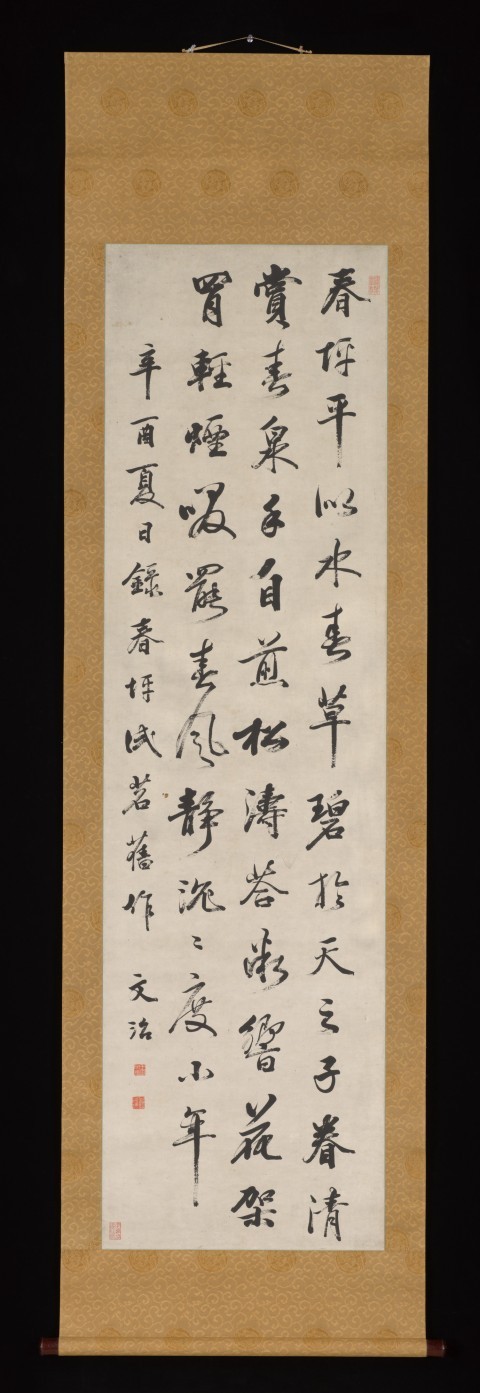 春坪平似水春草碧於天之子眷清
賞春泉手自煎松濤荅響花架
罥輕煙啜罷春風靜沉〻度小年
辛酉夏日錄春坪試茗舊作 文治